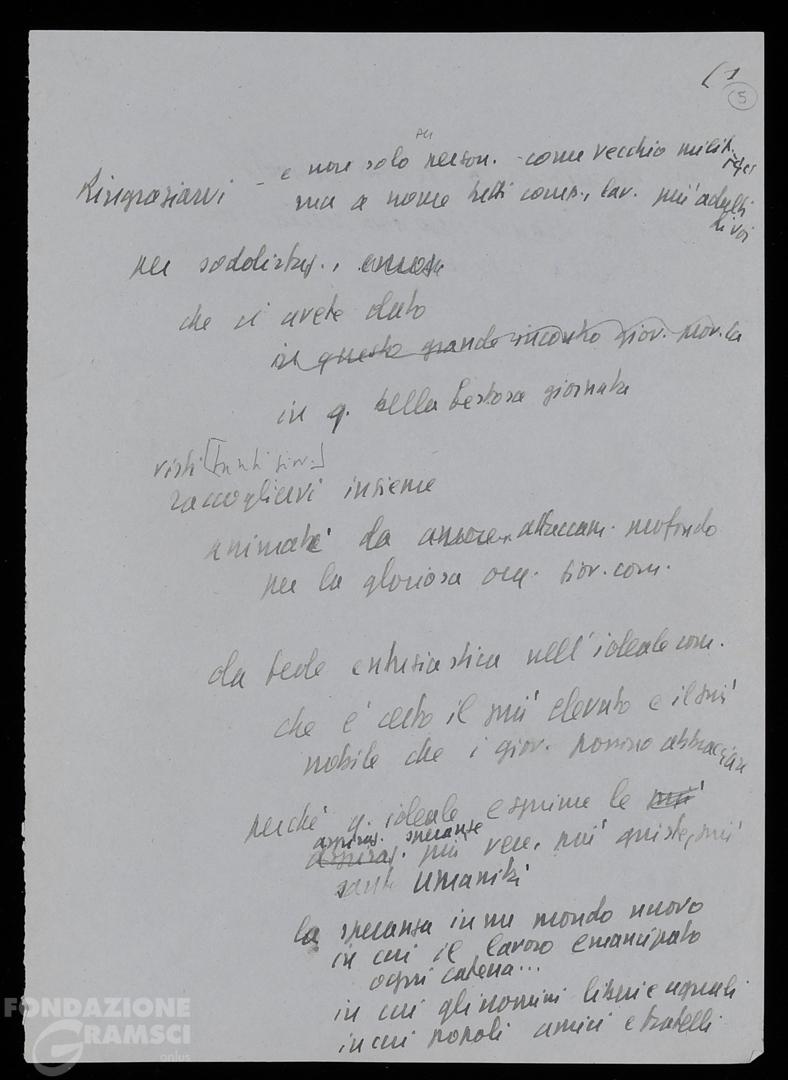 (1
5
Ringraziarvi - e non solo person. - come vecchio milit.
ma a nome tutti comp., lav. più adulti
di voi
per soddisfaz., amore
che ci avete dato
in questo grande incontro giov. prov.le
in q. bella festosa giornata
visti [tanti giov.]
raccogliervi insieme
animati da amore, attaccam. profondo
per la gloriosa org. giov. com.
da fede entusiastica nell'ideale com.
che è certo il più elevato e il più
nobile che i giov. possono abbracciare
perché q. ideale esprime le più
aspiraz. speranze
aspiraz. più vere, più giuste, più
sante umanità
la speranza in un mondo nuovo
in cui il lavoro emancipato
ogni catena...
in cui gli uomini liberi e uguali
in cui popoli amici e fratelli
FONDAZIONE
GRAMSCI
onlus